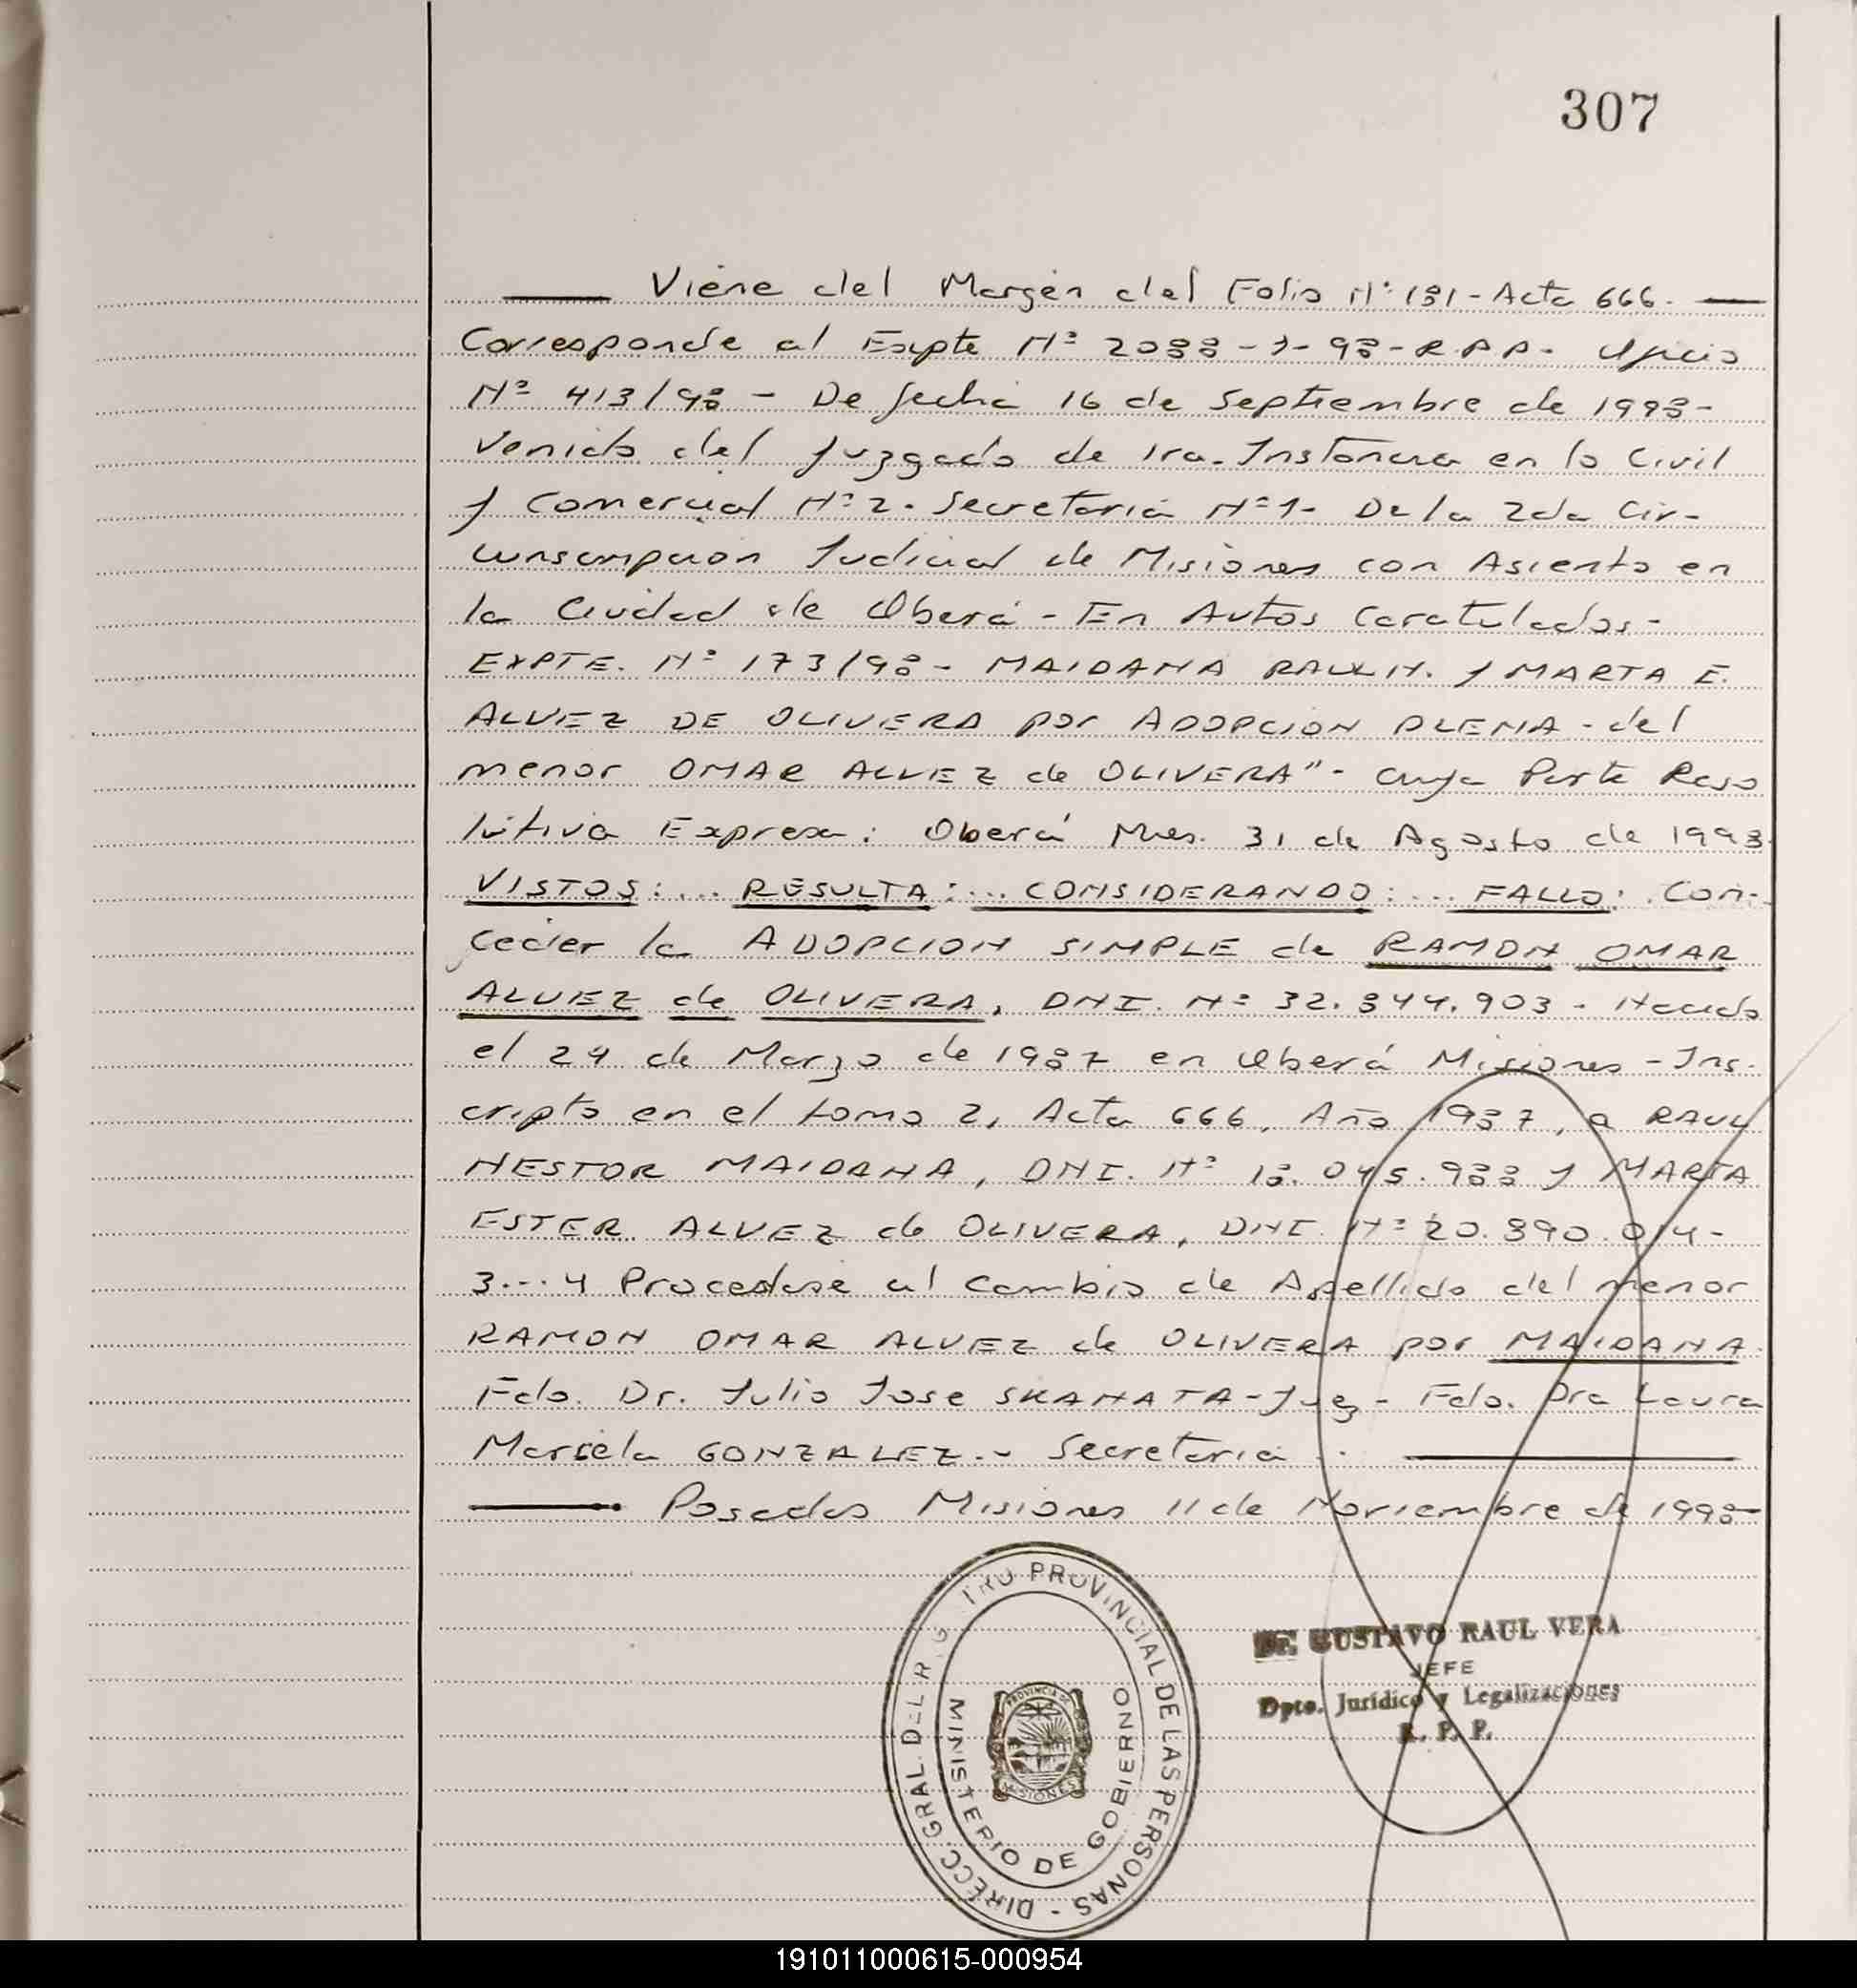 307
Viene del Margen del Folio Nº 131 - Acta 666.
Corresponde al Expte Nº 2088 - J - 98 - R.P.P. Oficio
Nº 413/98 - De fecha 16 de Septiembre de 1998-
Venido del Juzgado de 1ra. Instancia en lo Civil
y Comercial Nº 2. Secretaria Nº 1- De la 2da Cir-
cunscripcion Judicial de Misiones con Asiento en
la Ciudad de Oberá - En Autos Caratulados-
EXPTE. Nº 173/98 - MAIDANA RAUL N. y MARTA E.
ALVEZ DE OLIVERA por ADOPCION PLENA - del
menor OMAR ALVEZ de OLIVERA" - cuya Parte Reso
lutiva Expresa: Oberá Mnes. 31 de Agosto de 1998
VISTOS: ... RESULTA: ... CONSIDERANDO: ... FALLO: Con-
ceder la ADOPCION SIMPLE de RAMON OMAR
ALVEZ de OLIVERA, DNI. Nº 32.844.903 - Nacido
el 24 de Marzo de 1987 en Oberá Misiones - Ins-
cripto en el tomo 2, Acta 666, Año 1987, a RAUL
NESTOR MAIDANA, DNI. Nº 18.045.988 y MARTA
ESTER ALVEZ de OLIVERA, DNI Nº 20.890.014-
3...4 Procedase al Cambio de Apellido del menor
RAMON OMAR ALVEZ de OLIVERA por MAIDANA.
Fdo. Dr. Julio Jose SKANATA - Juez - Fdo. Dra Laura
Marsela GONZALEZ. - Secretaria.
Posadas Misiones 11 de Noviembre de 1998-
DIRECC. GRAL. DEL REGISTRO PROVINCIAL DE LAS PERSONAS -
MINISTERIO DE GOBIERNO
PROVINCIA DE
MISIONES
Dr. GUSTAVO RAUL VERA
JEFE
Dpto. Jurídico y Legalizaciones
R. P. P.
191011000615-000954